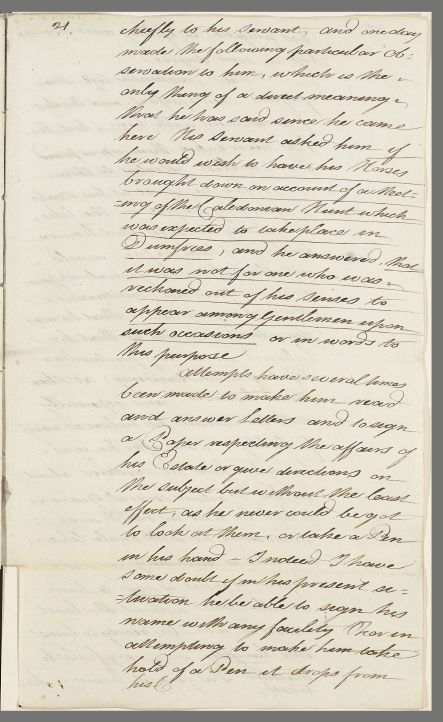 21.
cheefly to his servant, and one day
made the following particular ob=
servation to him, which is the
only thing of a direct meaning
that he has said since he came
here His servant asked him if
he would wish to have his Horses
brought down on account of a Meet-
-ing of the Caledonean Hunt which
was expected to take place in
Dumfries, and he answered, that
it was not for one who was
reckoned out of his senses to
appear among Gentlemen upon
such occasions or in words to
this purpose
Attempts have several times
been made to make him read
and answer Letters and to sign
a Paper respecting the affairs of
his Estate or give directions on
the subject but without the least
effect, as he never could be got
to look at them, or take a Pen
in his hand – Indeed I have
some doubt if in his present si-
=tuation he be able to sign his
name with any facility For in
attempting to make him take
hold of a Pen it drops from
his